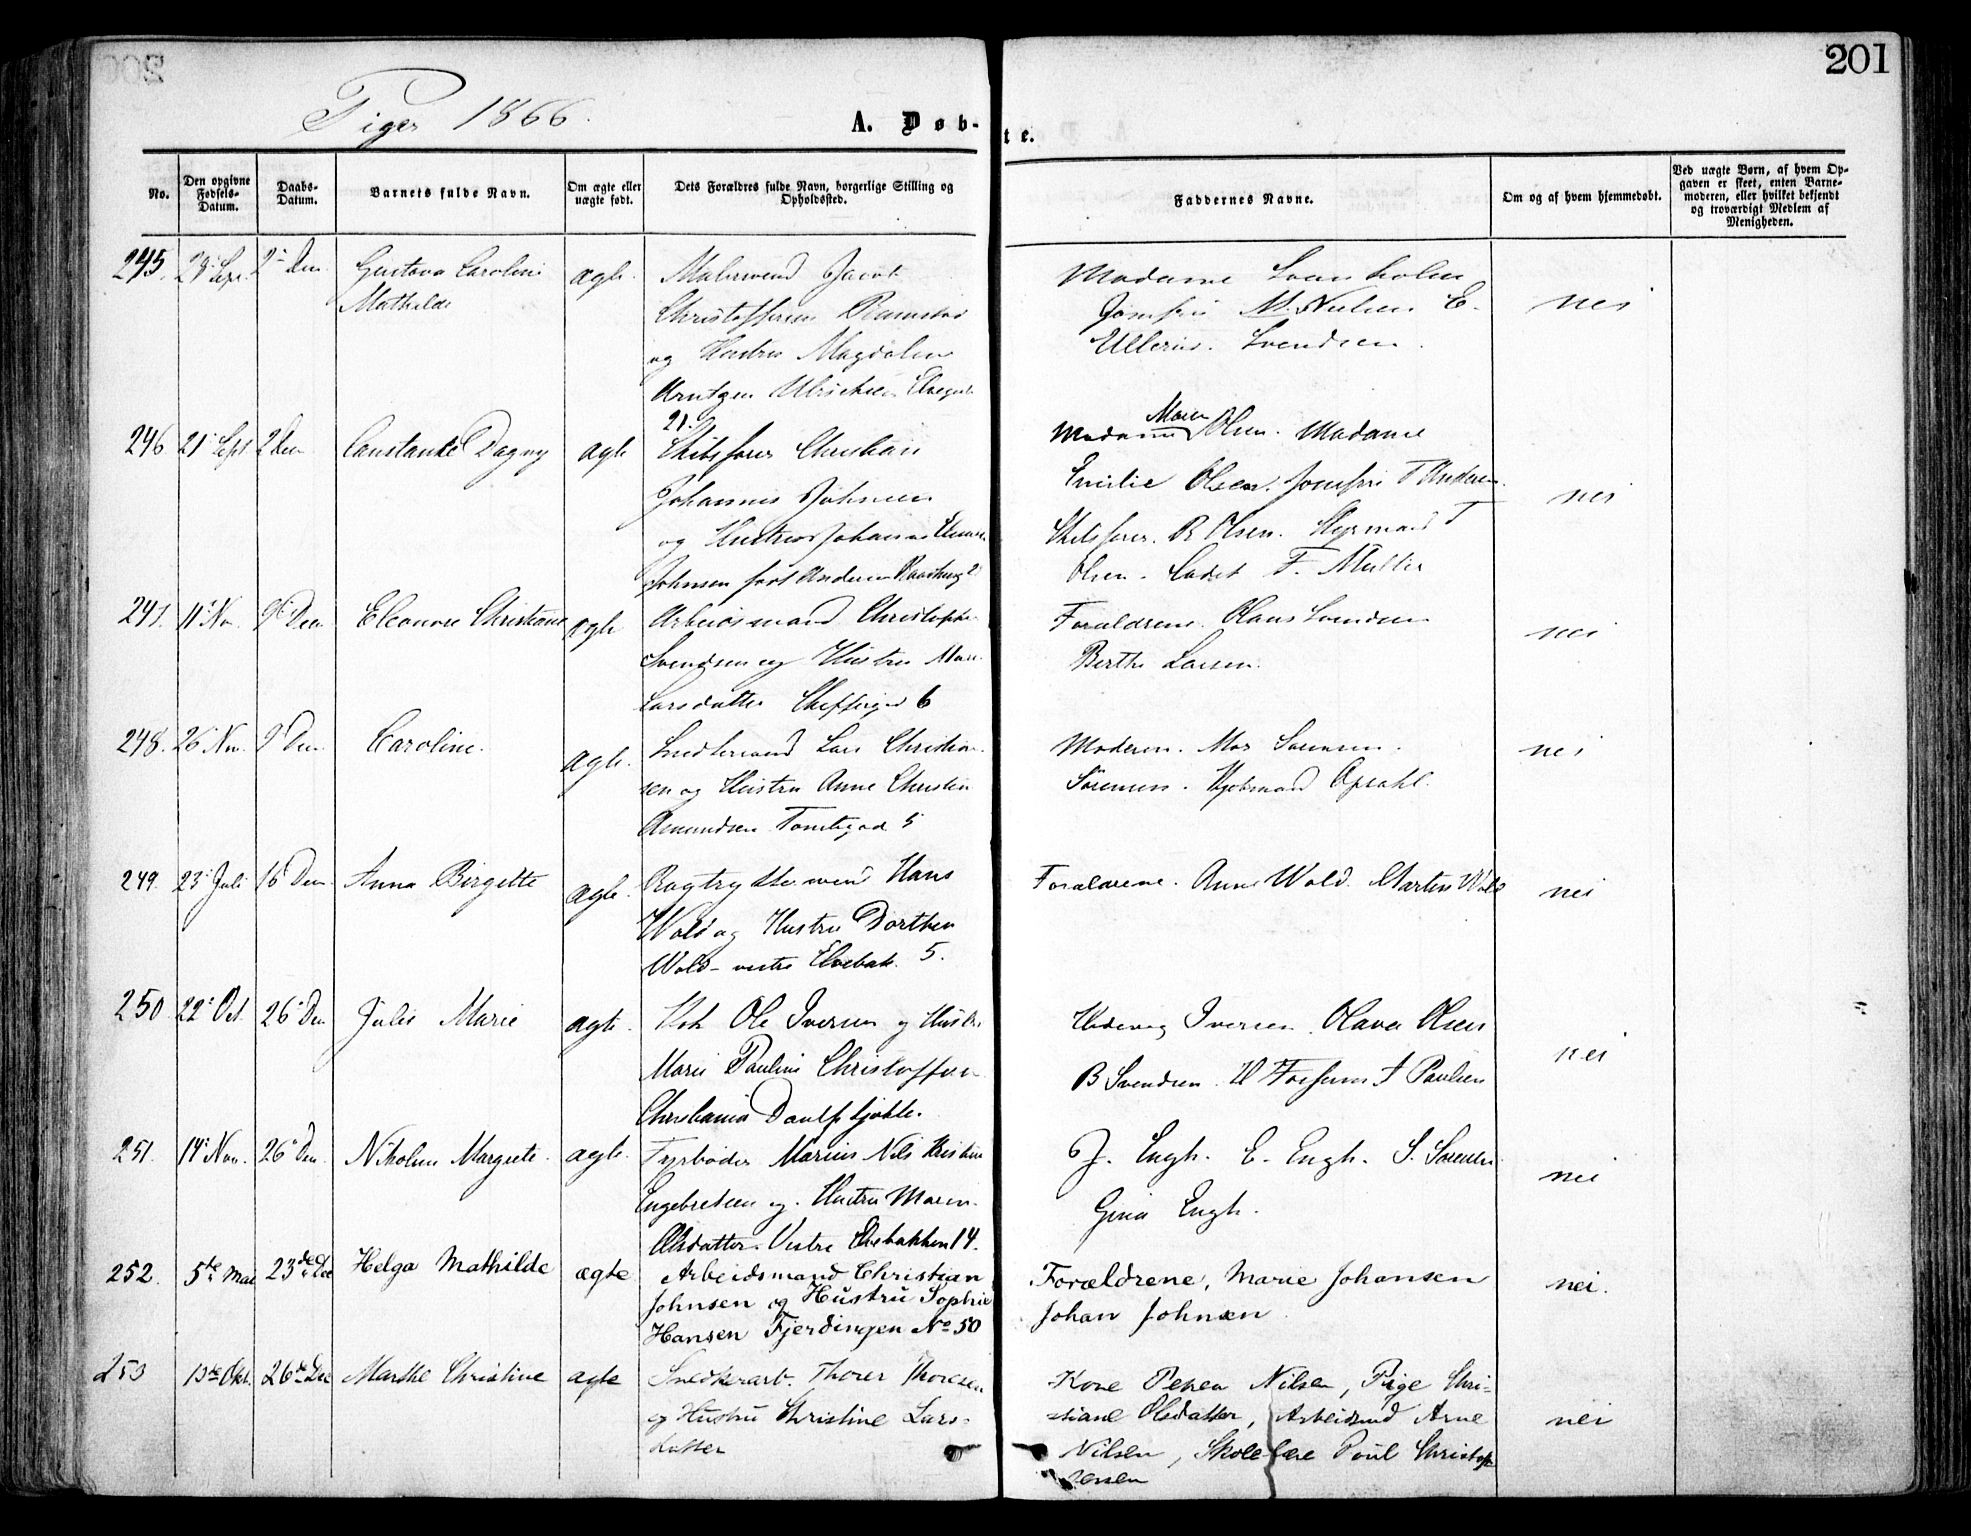 201
Piger 1866.
A. Døb-
te.
No.
Den opgivne Fødsels-Datum.
Daabs-Datum.
Barnets fulde Navn.
Om ægte eller uægte født.
Dets Forældres fulde Navn, borgerlige Stilling og Opholdssted.
Faddernes Navne.
Om og af hvem hjemmedøbt.
Ved uægte Børn, af hvem Op-
gaven er skeet, enten Barne-
moderen, eller hvilket bekjendt
og troværdigt Medlem af
Menigheden.
245. 23 Sept 2 Dec Gustava Caroline ægte. Malersvend Jacob Madame Svanholm
Mathilde Christoffersen Ramstad Jomfru M. Nielsen E. nei
og Hustru Magdalene Ullerin. Svendsen.
Arntzen Ulrichsen
21.
246 21 Sept 2 Dec Constance Dagny ægte Skibsfører Christian Madame Maren Olsen. Madame
Johannes Johnsen Emilie Olsen. Jomfru T Andersen. nei
og Hustru Johanne Skibsfører. B Olsen. Styrmand T
Johnsen født Andersen Olsen. Cadet F. Müller
247. 11 Nov. 9 Dec Eleonore Christiane ægte Arbeidsmand Christopher Forældrene. Olaus Svendsen nei
Svendsen og Hustru Maren Berthe Larsen.
Larsdatter 6
248. 26 Nov. 9 Dec Caroline. ægte. Lars Christian- Moderen. Sørensen. nei
sen og Hustru Anne Christine Sørensen.
Amundsen Tomtegad 5
249. 23 Juli 16 Dec Anna Birgitte ægte. Bogtrykkersvend Hans Forældrene. Anne Wold. Martin Wold nei
Wold og Hustru Dorthea
Wold - vestre Elvebak. 5.
250. 22 Oct. 26 Dec Julie Marie ægte. Ole Iversen og Hustru Hedevig Iversen. Olava Olsen
Marie Pauline Christoffersen B Svendsen. H Fossum J Paulsen nei
Christiania
251. 14 Nov. 26 Dec. Nikoline Margrete. ægte. Fyrbøder Marius Nils Kristian J. Engh. E. Engh. S. Sørensen
Engebretsen og. Hustru Maren Gina Engh. nei
Olsdatter. Vestre Elvebakken 14.
252. 5te Mai 23de Dec Helga Mathilde ægte Arbeidsmand Christian Forældrene, Marie Johansen nei.
Johnsen og Hustru Sophie Johan Johnsen
Hansen Fjerdingen No 50
253 13te Okt. 26de Dec Marthe Christine ægte Snedkerarb. Thorer Thoresen Kone Petrea Nilsen, Pige Chri-
og Hustru Christine Lars- stiane Olsdatter, Arbeidsmd Arne nei
datter Nilsen, Skolelære Poul Christop-
hersen